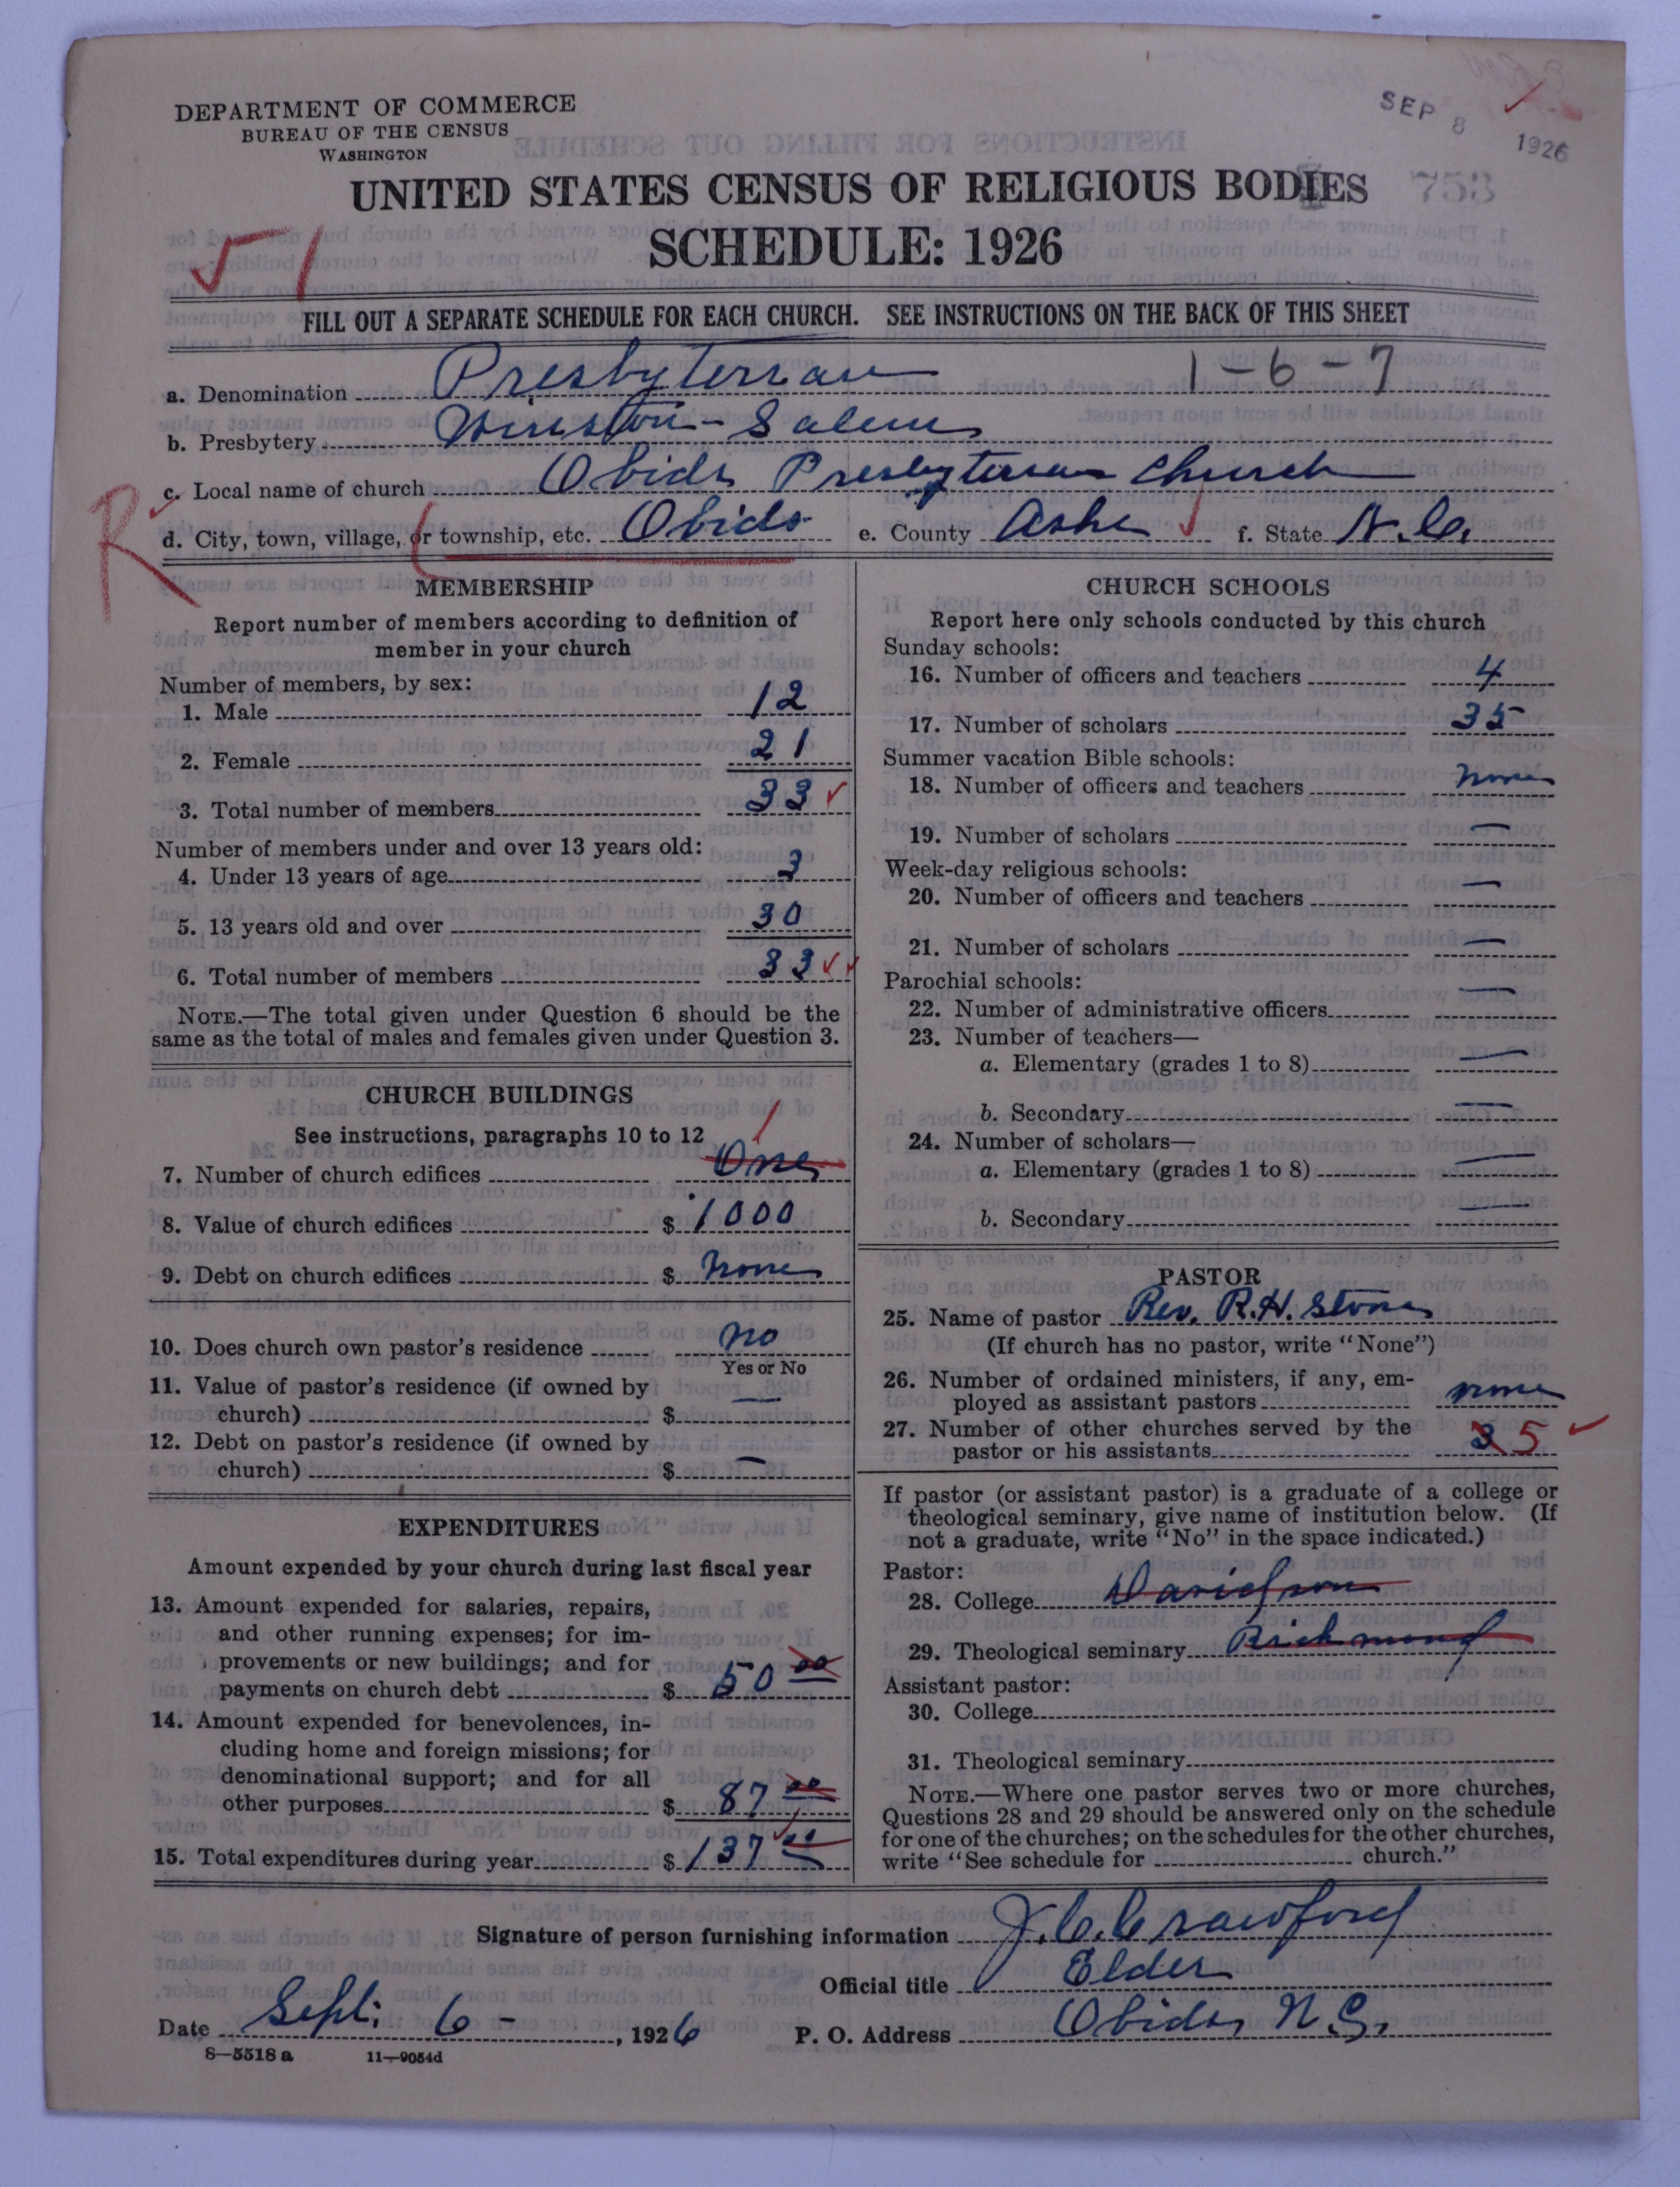 DEPARTMENT OF COMMERCE
BUREAU OF THE CENSUS
WASHINGTON
SEP 8 1926
UNITED STATES CENSUS OF RELIGIOUS BODIES
SCHEDULE: 1926
FILL OUT A SEPARATE SCHEDULE FOR EACH CHURCH. SEE INSTRUCTIONS ON THE BACK OF THIS SHEET
1-6-7
a. Denomination Presbyterian
b. Presbytery Winston-Salem
R
c. Local name of church Obids Presbyterian Church
d. City, town, village, or township, etc. Obids e. County Ashe f. State N.C.
MEMBERSHIP
Report number of members according to definition of
member in your church
Number of members, by sex:
1. Male 12
2. Female 21
3. Total number of members 33
Number of members under and over 13 years old:
4. Under 13 years of age 3
5. 13 years old and over 30
6. Total number of members 33
NOTE.—The total given under Question 6 should be the
same as the total of males and females given under Question 3.
CHURCH BUILDINGS
See instructions, paragraphs 10 to 12
1
7. Number of church edifices One
8. Value of church edifices $ 1000
9. Debt on church edifices $ None
10. Does church own pastor's residence No
Yes or No
11. Value of pastor's residence (if owned by
church) $ —
12. Debt on pastor's residence (if owned by
church) $ —
EXPENDITURES
Amount expended by your church during last fiscal year
13. Amount expended for salaries, repairs,
and other running expenses; for im-
provements or new buildings; and for
payments on church debt $ 50 00
14. Amount expended for benevolences, in-
cluding home and foreign missions; for
denominational support; and for all
other purposes $ 87 00
15. Total expenditures during year $ 137 00
CHURCH SCHOOLS
Report here only schools conducted by this church
Sunday schools:
16. Number of officers and teachers 4
17. Number of scholars 35
Summer vacation Bible schools:
18. Number of officers and teachers None
19. Number of scholars —
Week-day religious schools:
20. Number of officers and teachers —
21. Number of scholars —
Parochial schools:
22. Number of administrative officers —
23. Number of teachers—
a. Elementary (grades 1 to 8) —
b. Secondary —
24. Number of scholars—
a. Elementary (grades 1 to 8) —
b. Secondary —
PASTOR
25. Name of pastor Rev. R.H. Stone
(If church has no pastor, write "None")
26. Number of ordained ministers, if any, em-
ployed as assistant pastors none
27. Number of other churches served by the
pastor or his assistants 3 5
If pastor (or assistant pastor) is a graduate of a college or
theological seminary, give name of institution below. (If
not a graduate, write "No" in the space indicated.)
Pastor:
28. College Davidson
29. Theological seminary Richmond
Assistant pastor:
30. College
31. Theological seminary
NOTE.—Where one pastor serves two or more churches,
Questions 28 and 29 should be answered only on the schedule
for one of the churches; on the schedules for the other churches,
write "See schedule for church."
Signature of person furnishing information J.C. Crawford
Official title Elder
Date Sept. 6 - , 1926 P. O. Address Obids, N.C.
8—5518 a 11—9054d